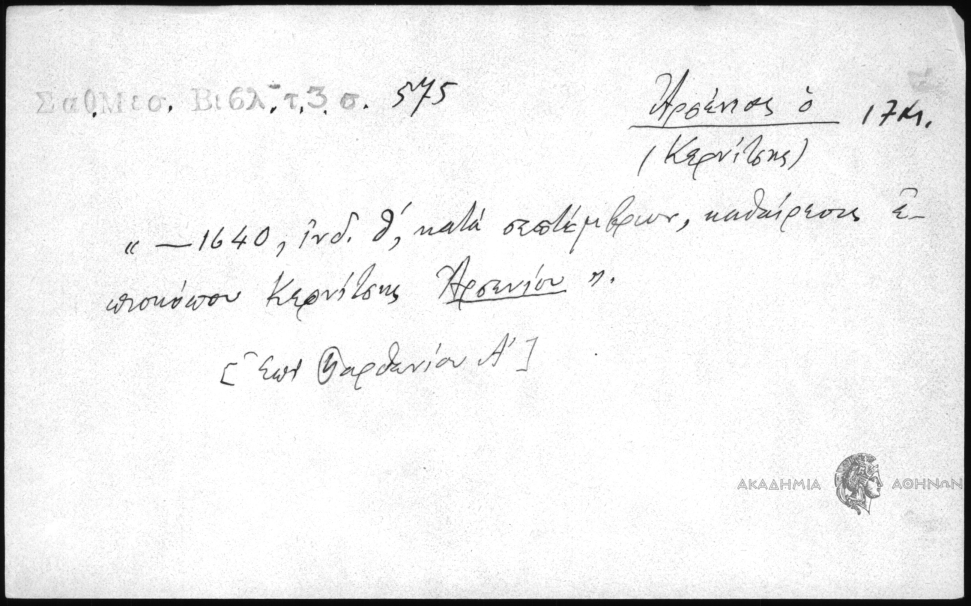 Σαθ. Μεσ. Βιβλ. τ. 3 σ. 575
Ἀρσένιος ὁ 17 αἰ.
(Κερνίτσης)
"—1640, ἰνδ. θ', κατὰ σεπτέμβριον, καθαίρεσις ἐ-
πισκόπου Κερνίτσης Ἀρσενίου".
[Ἐπὶ Παρθενίου Α']
ΑΚΑΔΗΜΙΑ ΑΘΗΝΩΝ